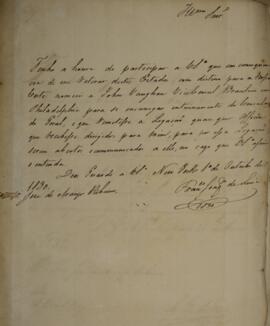 Illmo
Snr.
Tenho a honra de participar a V.Sª. que em consequencia
de me retirar destes Estados, com destino para a nossa
Corte, nomeei a John Vaughan Viceconsul Brasileiro em
Philadelphia para se encarregar interinamente do Consulado
Geral, e que remettesse a Legação quaesquer officios
que recebesse, dirigidos para mim, para por essa Legação
serem abertos communicados a elle, no caso que V.Sª. assim
o entenda.
Deos Guarde a V.Sª. New York 1º de Outubro de
1830.
José de Araujo Ribeiro